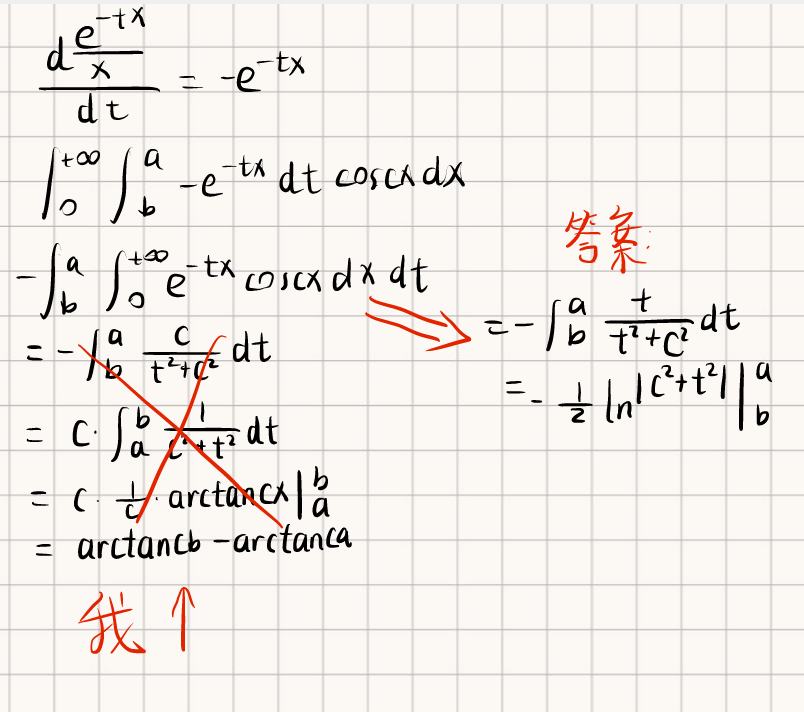 d(e^{-tx}/x)/dt = -e^{-tx}
∫_0^{+∞} ∫_b^a -e^{-tx} dt coscx dx
-∫_b^a ∫_0^{+∞} e^{-tx} coscx dx dt
= -∫_b^a c/(t²+c²) dt
= C·∫_a^b 1/(c²+t²) dt
= c·1/c·arctancx|_a^b
= arctancb - arctanca
我↑
答案:
= -∫_b^a t/(t²+c²) dt
= -1/2 ln|c²+t²||_b^a